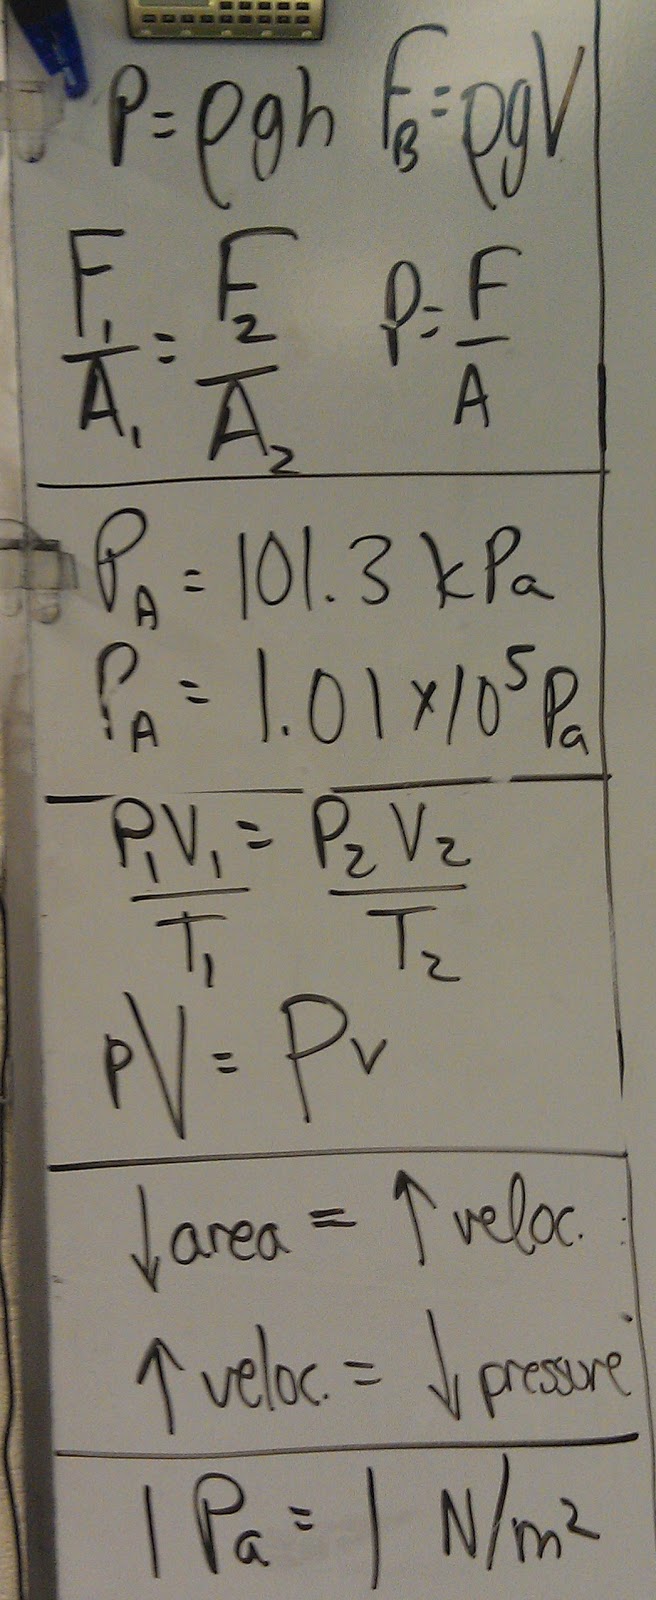 P = ρgh F_B = ρgV
F₁/A₁ = F₂/A₂ P = F/A
P_A = 101.3 kPa
P_A = 1.01 × 10⁵ Pa
P₁V₁/T₁ = P₂V₂/T₂
pV = Pv
↓ area = ↑ veloc.
↑ veloc. = ↓ pressure
1 Pa = 1 N/m²